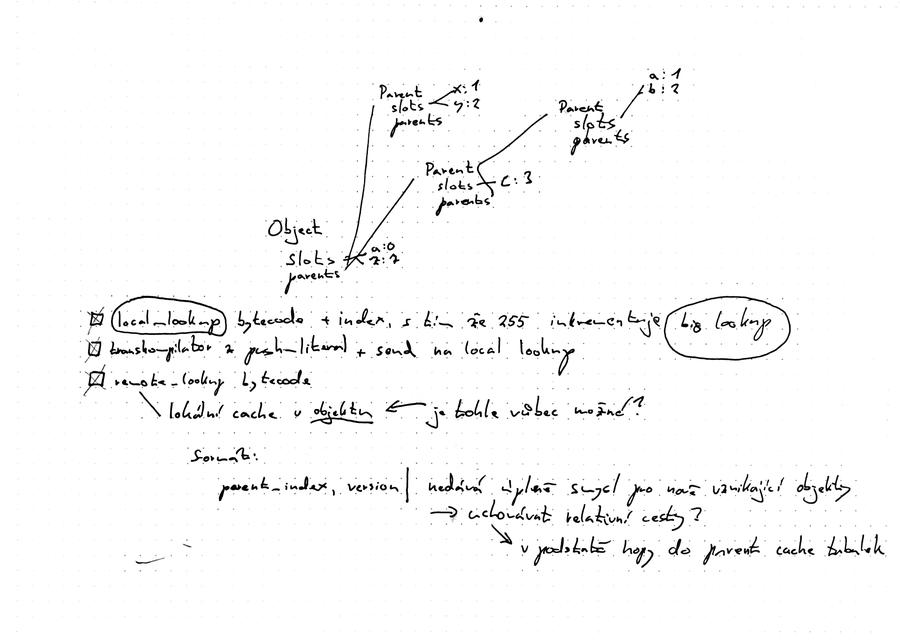 a:1
Parent x:1 b:2
slots y:2 Parent
parents slots
parents
Parent
slots c:3
parents
Object
slots a:0
parents z:2
local_lookup bytecode + index, s tím že 255 inkrementuje big lookup
transkompilátor z push_literal + send na local lookup
remote_lookup bytecode
lokální cache v objektu ← je tohle vůbec možné?
formát:
parent_index, version | nedává úplně smysl pro nově vznikající objekty
→ uchovávat relativní cesty?
v podstatě hopy do parent cache tabulek